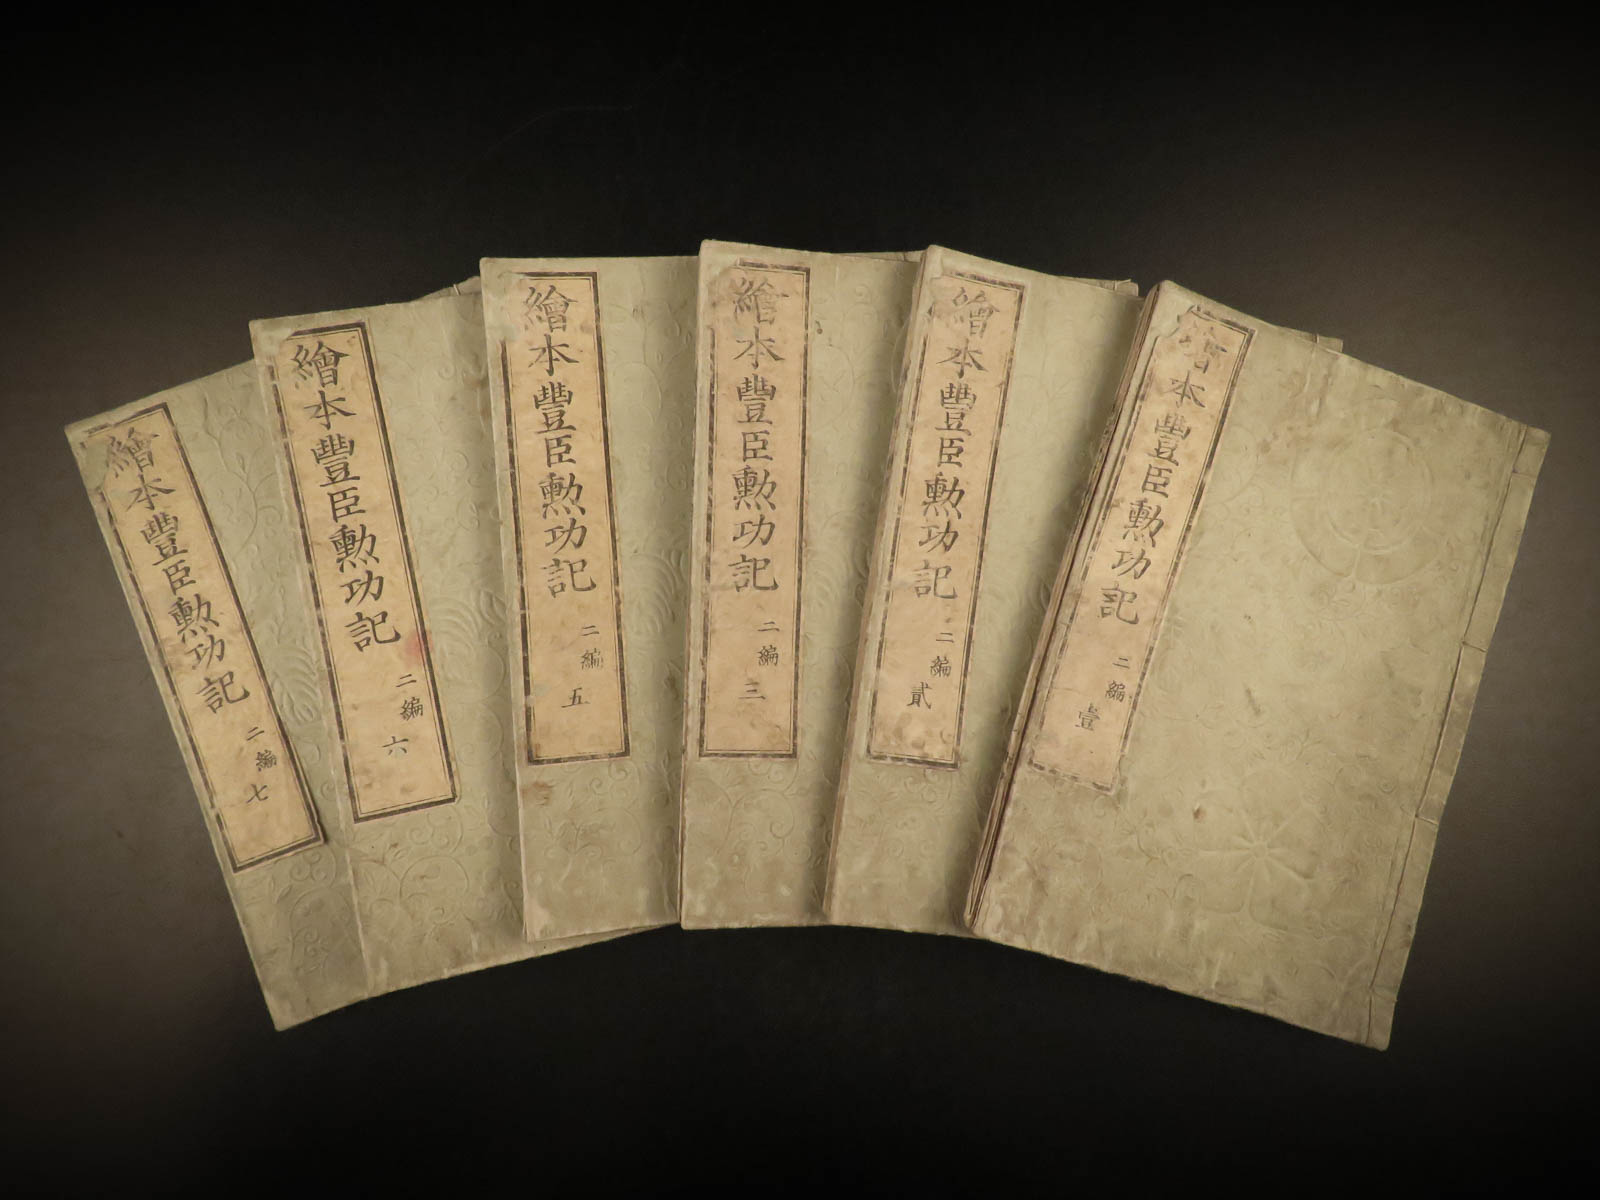 繪本豐臣勲功記 二編 壹
繪本豐臣勲功記 二編 貳
繪本豐臣勲功記 二編 三
繪本豐臣勲功記 二編 五
繪本豐臣勲功記 二編 六
繪本豐臣勲功記 二編 七